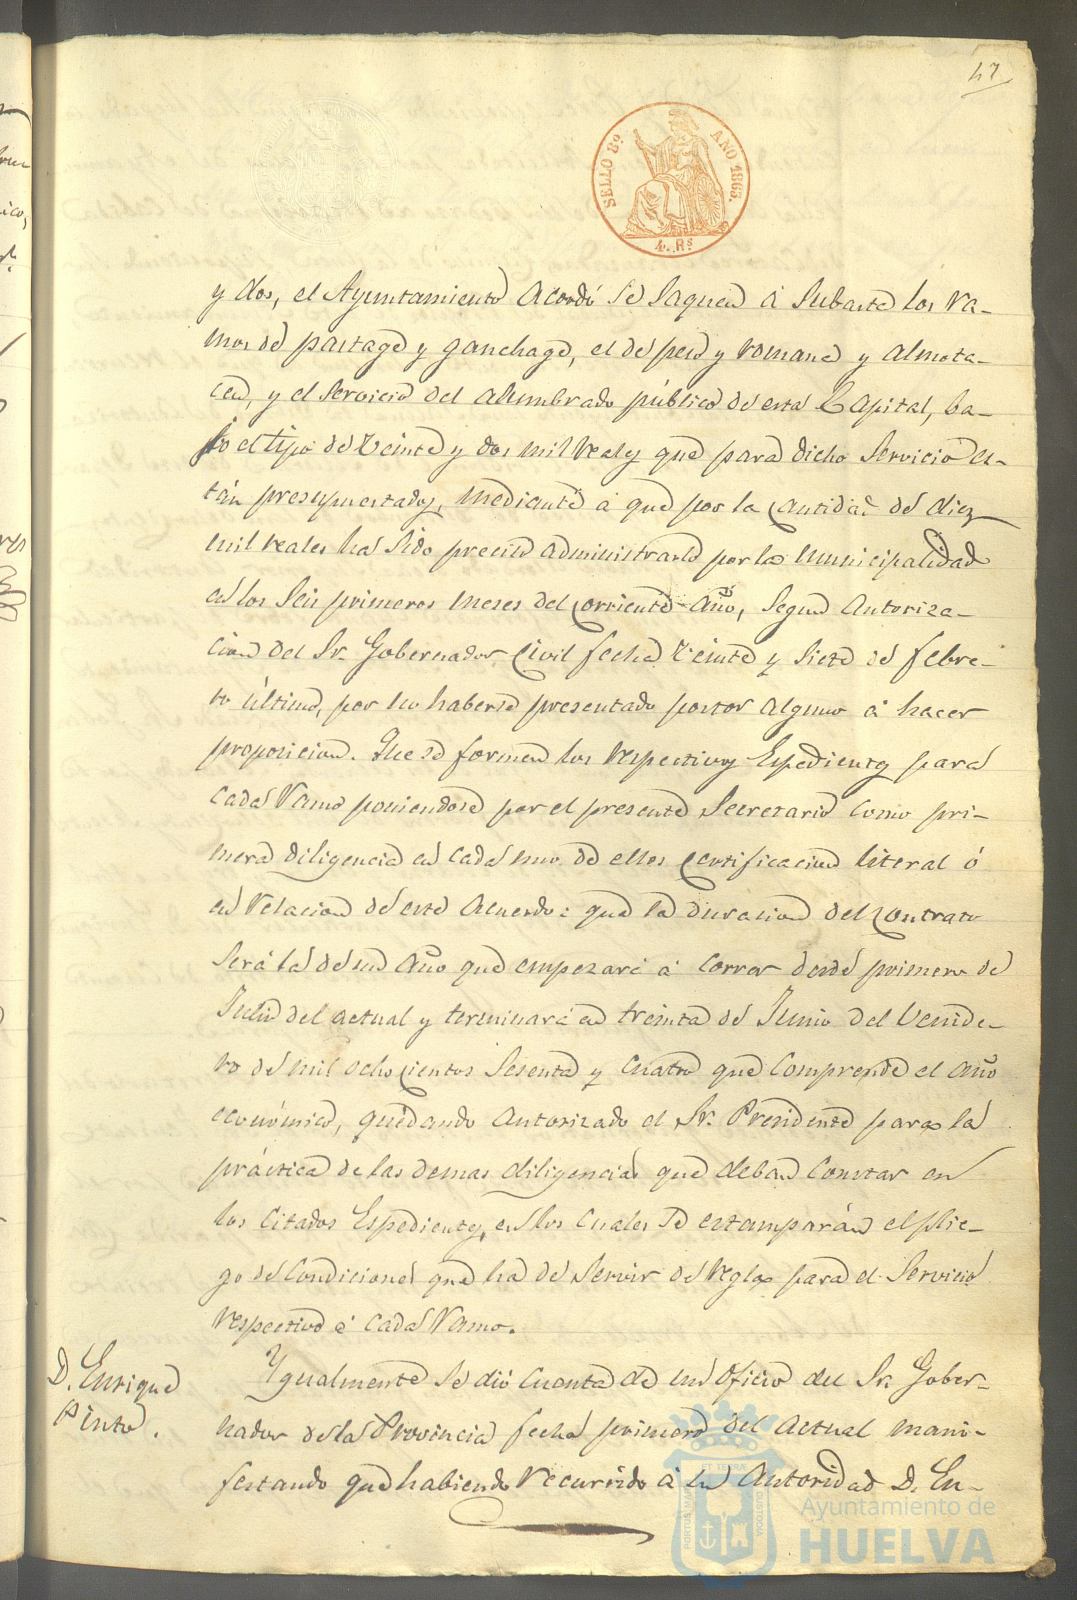 47
SELLO 8º AÑO 1863.
4. Rs
y dos, el Ayuntamiento acordó se saquen á subasta los ra-
mos de partage y ganchage, el de peso y romana y almota-
cen, y el servicio del alumbrado público de esta Capital, ba-
jo el tipo de veinte y dos mil reales que para dicho servicio es-
tán presupuestados, mediante á que por la cantidad de diez
mil reales ha sido preciso administrarlo por la municipalidad
en los seis primeros meses del corriente año, segun autoriza-
cion del Sr. Gobernador Civil fecha veinte y siete de febre-
ro último, por no haberse presentado postor alguno á hacer
proposicion. Que se formen los respectivos Espedientes para
cada ramo poniendose por el presente Secretario como pri-
mera diligencia en cada uno de ellos certificacion literal ó
en relacion de este acuerdo: que la duracion del contrato
será la de un año que empezará á correr desde primero de
Julio del actual y terminará en treinta de Junio del venide-
ro de mil ochocientos sesenta y cuatro que comprende el año
económico, quedando autorizado el Sr. Presidente para la
práctica de las demas diligencias que deban constar en
los citados Espedientes, en los cuales se estamparán el plie-
go de condiciones que ha de servir de regla para el servicio
respectivo á cada ramo.
D. Enrique
Pinto.
Ygualmente se dió cuenta de un oficio del Sr. Gober-
nador de la Provincia fecha primero del actual mani-
festando que habiendo recurrido á su autoridad D. En-
PORTUS MARIS ET TERRAE CUSTODIA
Ayuntamiento de
HUELVA